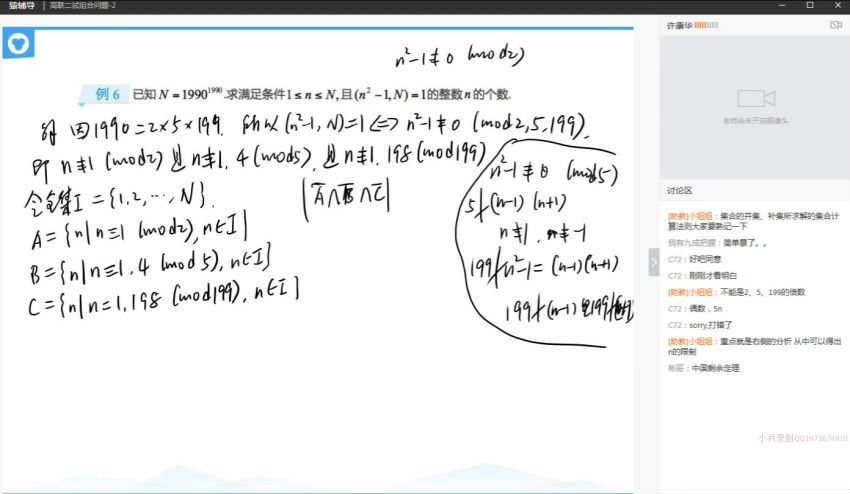 猿辅导 | 高联二试组合问题-2
n²-1≢0 (mod2)
例 6 已知 N = 1990^1990.求满足条件 1 ≤ n ≤ N, 且 (n² -1, N) = 1 的整数 n 的个数.
解 因1990=2×5×199. 所以 (n²-1, N)=1 ⟺ n²-1≢0 (mod2,5,199).
即 n≢1 (mod2) 且 n≢1, 4 (mod5), 且 n≢1, 198 (mod199)
令全集I={1,2,…,N}.
|A̅∩B̅∩C̅|
A={n|n≡1 (mod2), n∈I}
B={n|n≡1,4 (mod5), n∈I}
C={n|n≡1,198 (mod199), n∈I}
n²-1≢0 (mod5)
5∤(n-1)(n+1)
n≢1, n≢-1
199∤n²-1=(n-1)(n+1)
199∤(n-1) 且199∤(n+1)
许康华
老师尚未开启摄像头
讨论区
[助教]小姐姐：集合的并集、补集所求解的集合计
算法则大家要熟记一下
我有九成把握：简单暴了。。
C72：好吧同意
C72：刚刚才看明白
[助教]小姐姐：不能是2、5、199的倍数
C72：偶数，5n
C72：sorry,打错了
[助教]小姐姐：重点就是右侧的分析 从中可以得出
n的限制
彬哥：中国剩余定理
小兵录制QQ1973874810